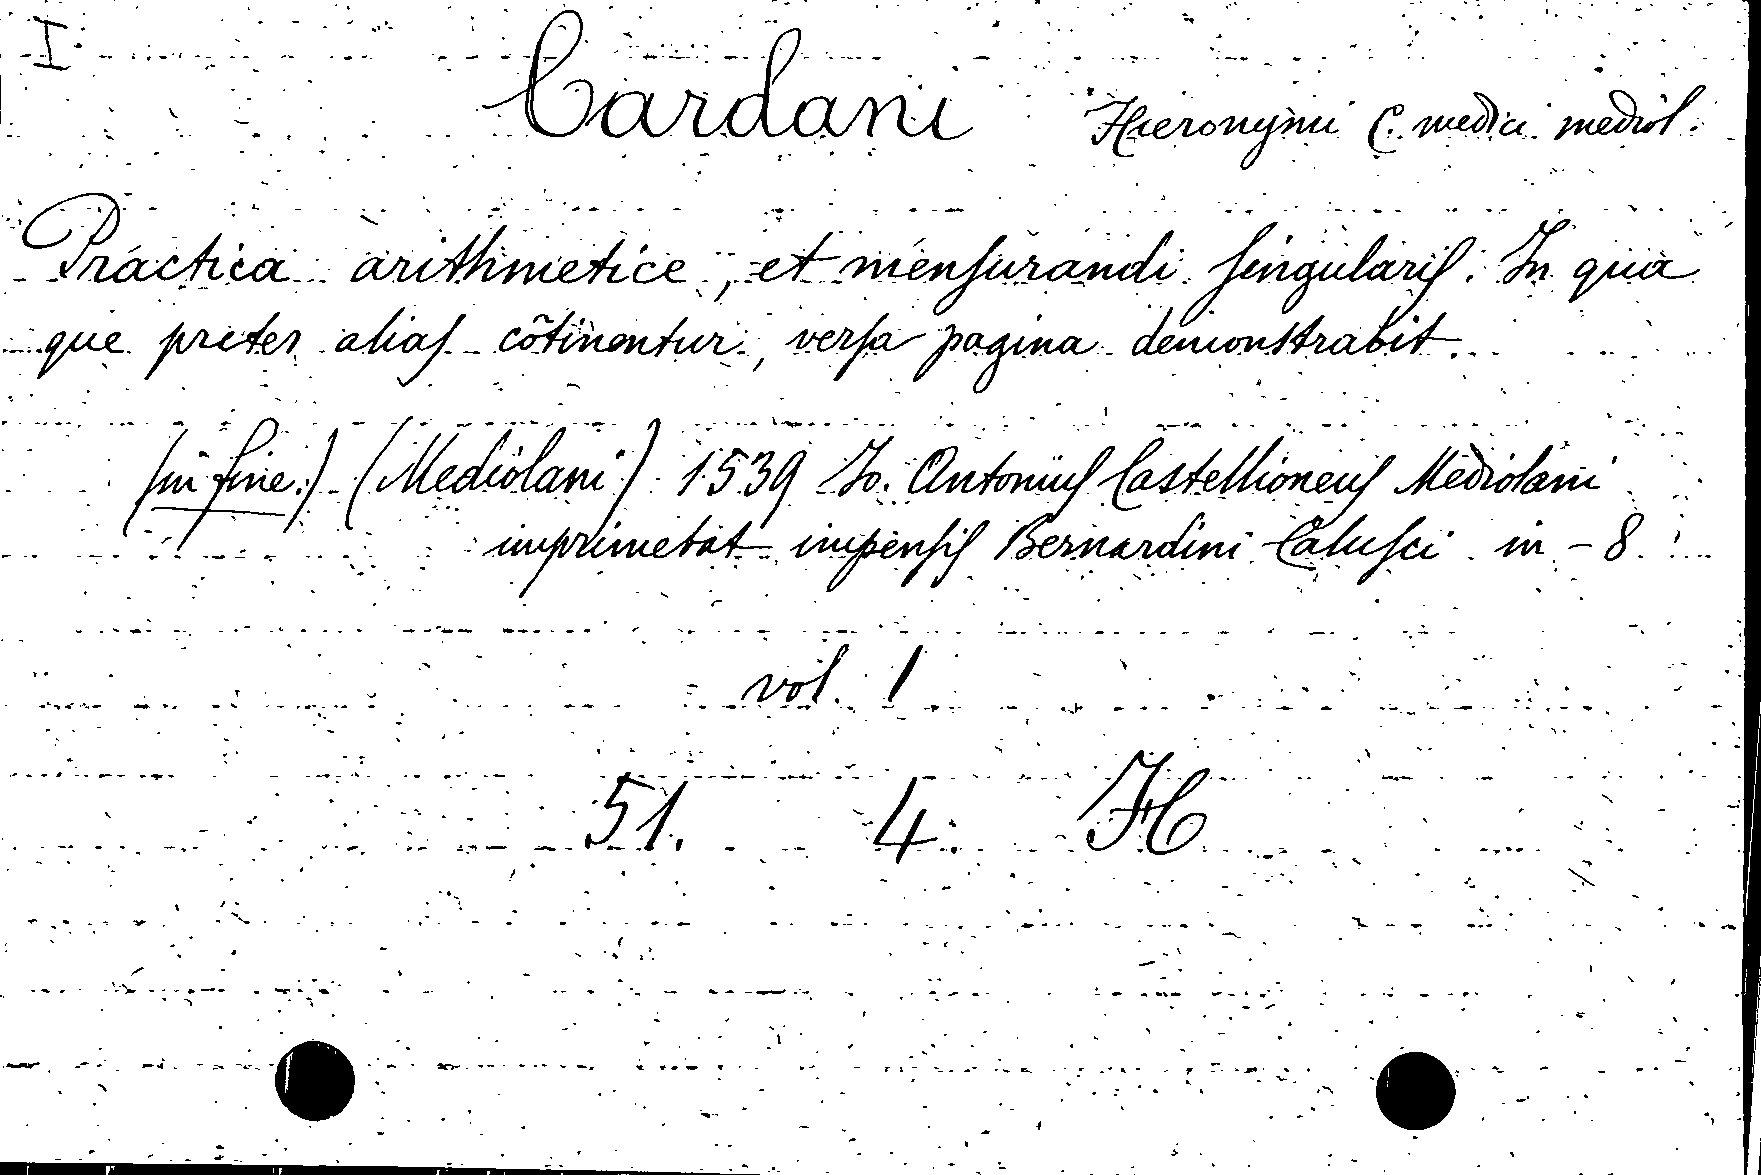 I
Cardani Hieronymi C. medici mediol.
Practica arithmetice, et menſurandi ſingulariſ. In qua
que preter aliaſ cõtinentur, verſa pagina demonstrabit.
(in fine.) (Mediolani) 1539 Io. Antoniuſ Castellioneuſ Mediolani
imprimebat impenſiſ Bernardini Caluſci in-8.
vol. 1
51. 4. H